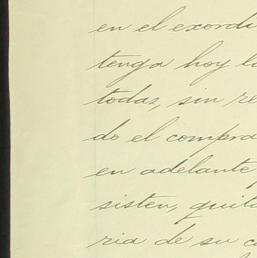 en el exordi
tenga hoy l
todas, sin re
do el compra
en adelante
sisten, quita
ria de su c